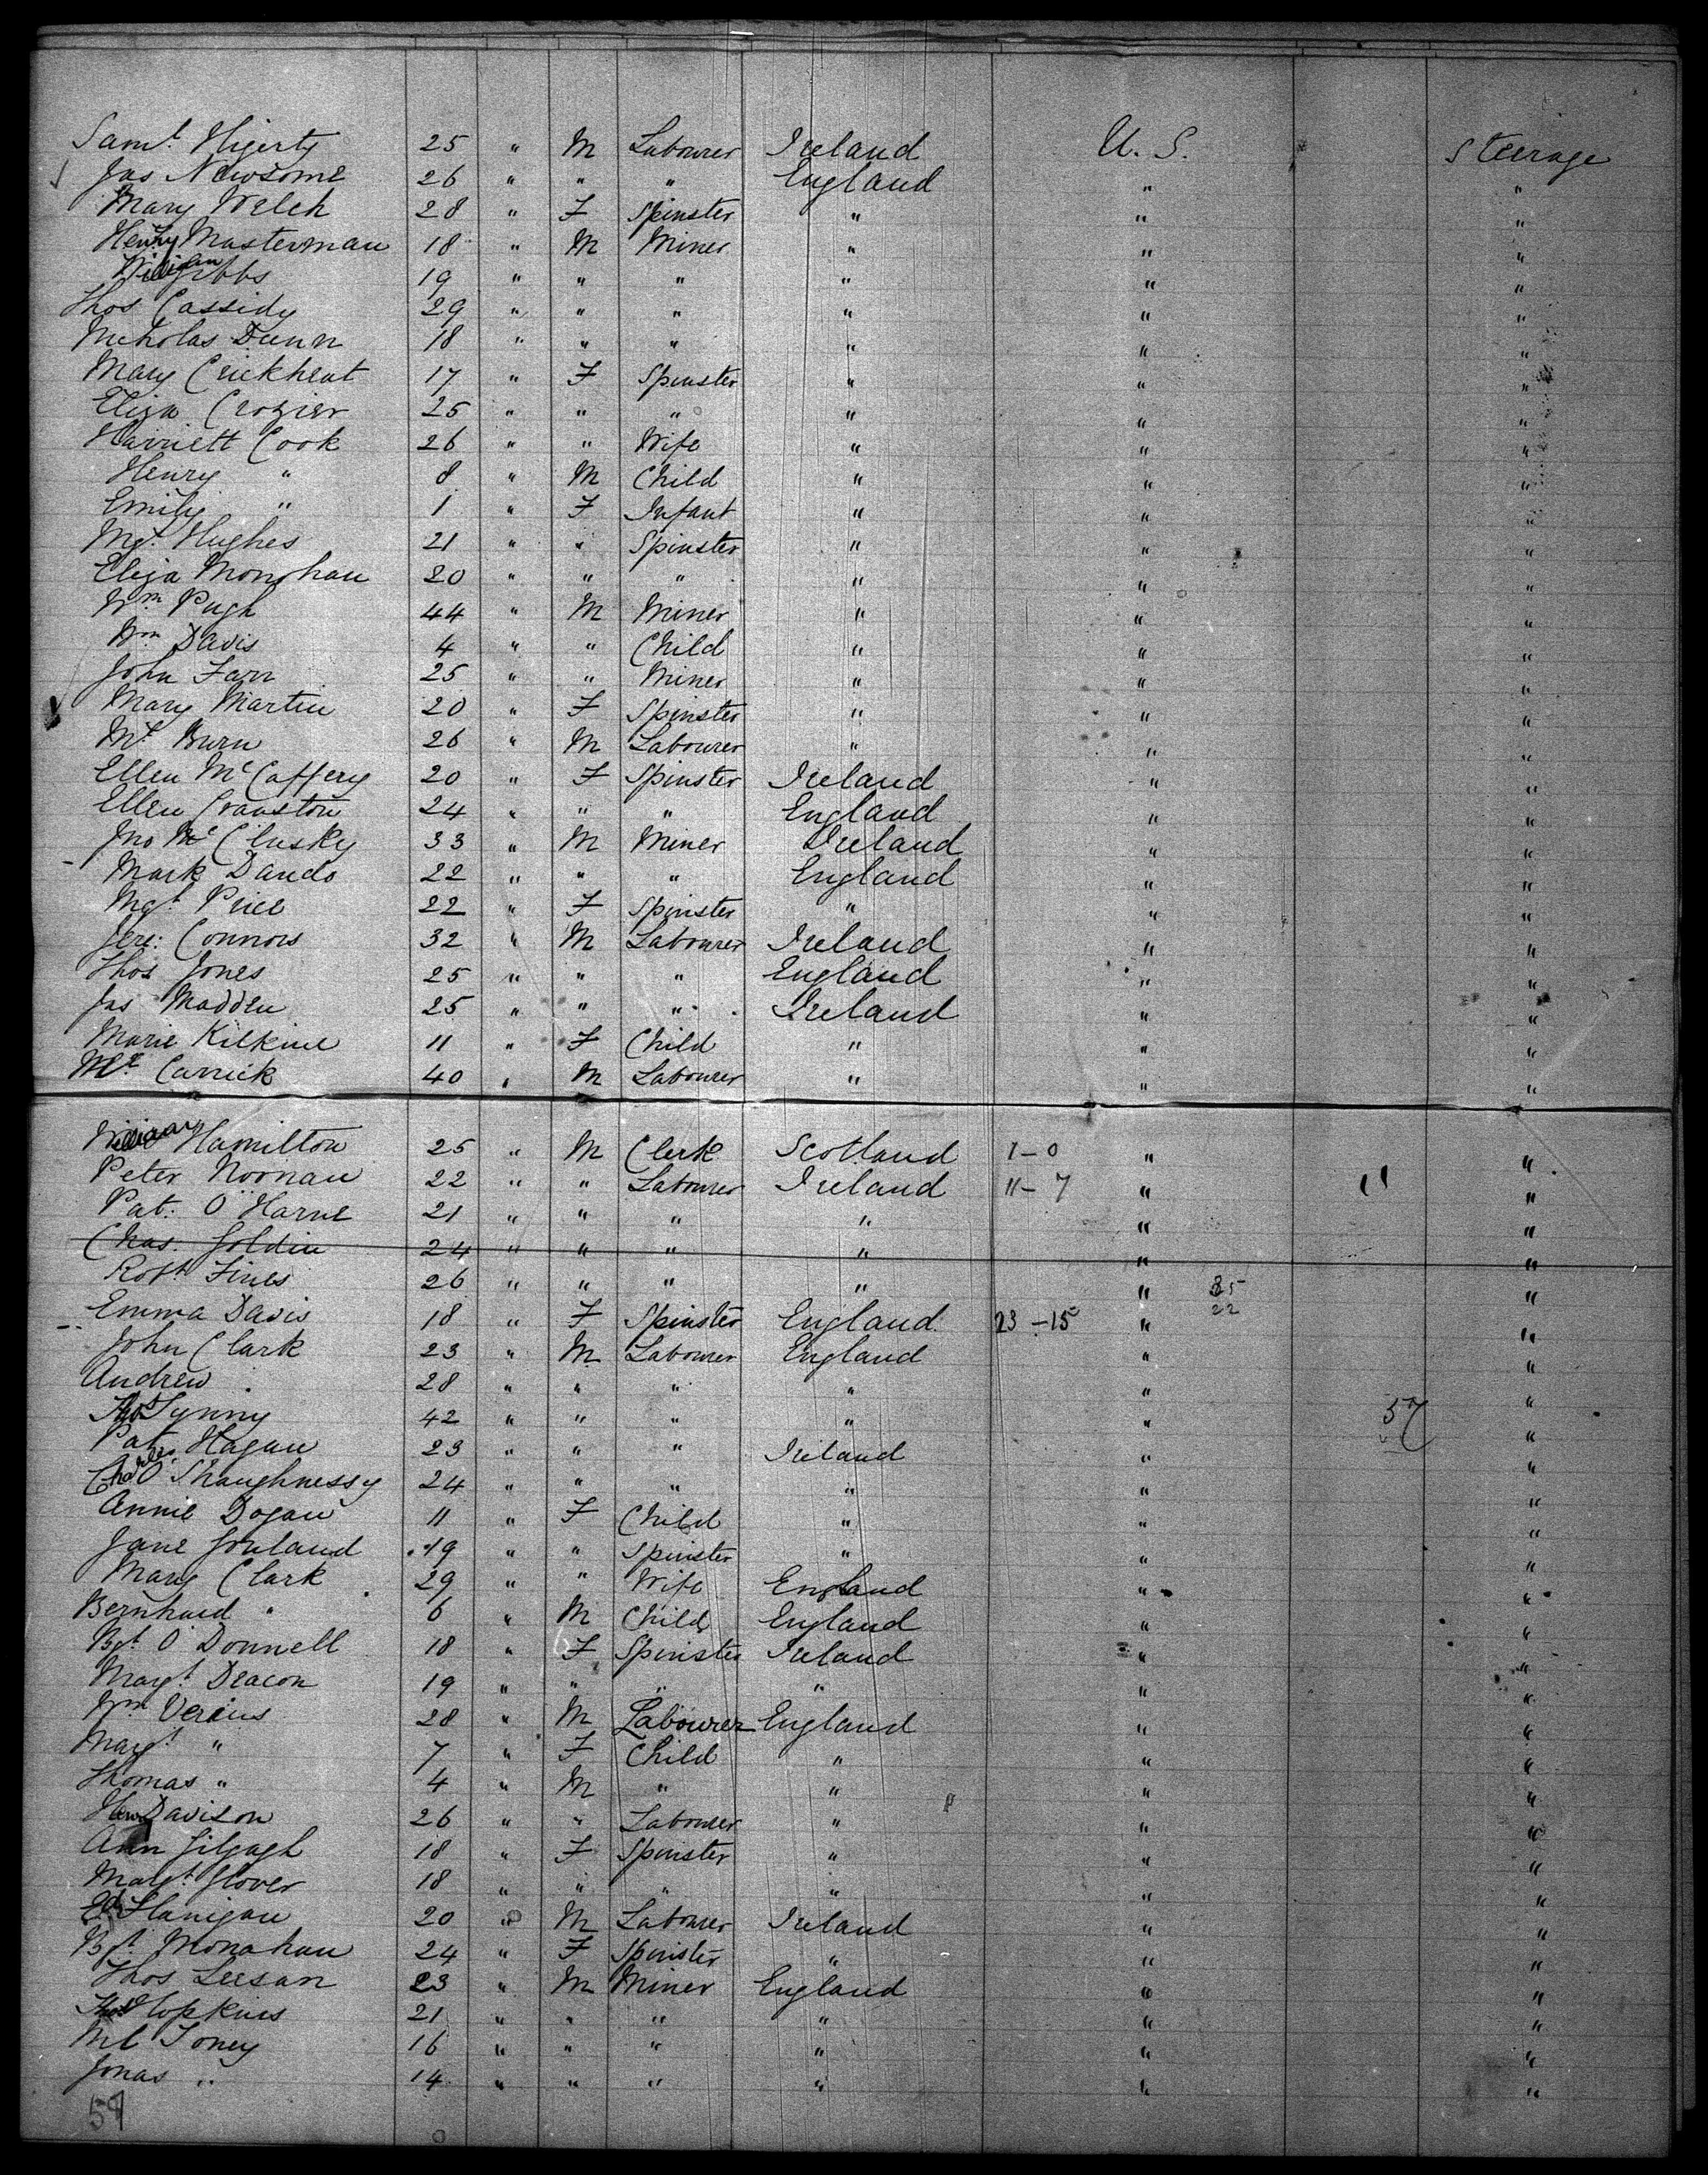 Saml. Higerty 25 " M Labourer Ireland U. S. Steerage
Jas Newsome 26 " " " England " "
Mary Welch 28 " F Spinster " " "
Henry Masterman 18 " M Miner " " "
William Gibbs 19 " " " " " "
Thos Cassidy 29 " " " " " "
Nicholas Dunn 18 " " " " " "
Mary Crickheat 17 " F Spinster " " "
Eliza Crozier 25 " " " " " "
Harriett Cook 26 " " Wife " " "
Henry " 8 " M Child " " "
Emily " 1 " F Infant " " "
Mgt. Hughes 21 " " Spinster " " "
Eliza Monohan 20 " " " " " "
Wm Pugh 44 " M Miner " " "
Wm Davis 4 " " Child " " "
John Farr 25 " " Miner " " "
Mary Martin 20 " F Spinster " " "
Mt Burn 26 " M Labourer " " "
Ellen McCaffery 20 " F Spinster Ireland " "
Ellen Cranston 24 " " " England " "
Jno McClusky 33 " M Miner Ireland " "
Mark Dando 22 " " " England " "
Mgt. Price 22 " F Spinster " " "
Jere: Connors 32 " M Labourer Ireland " "
Thos Jones 25 " " " England " "
Jas Madden 25 " " " Ireland " "
Marie Kilkine 11 " F Child " " "
Carrick 40 " M Labourer " " "
William Hamilton 25 " M Clerk Scotland 1-0 " "
Peter Noonan 22 " " Labourer Ireland 11-7 " " "
Pat: O'Harne 21 " " " " " "
Chas. Goldin 24 " " " " " "
Robt. Fines 26 " " " " " 25 "
Emma Davis 18 " F Spinster England 23-15 " 22 "
John Clark 23 " M Labourer England " "
Andrew " 28 " " " " " "
Lynny 42 " " " " " 57 "
Pat. Hagan 23 " " " Ireland " "
Charles O'Shaughnessy 24 " " " " " "
Annie Dogan 11 " F Child " " "
Jane Gouland 19 " " Spinster " " "
Mary Clark 29 " " Wife England " "
Bernhard " 6 " M Child England " "
Bgt. O'Donnell 18 " F Spinster Ireland " "
Margt Deacon 19 " " " " " "
Wm Verius 28 " M Labourer England " "
Margt " 7 " F Child " " "
Thomas " 4 " M " " " "
Davison 26 " " Labourer " " "
Ann Gilgagh 18 " F Spinster " " "
Margt. Glover 18 " " " " " "
Ed Flanigan 20 " M Labourer Ireland " "
Bgt. Monahan 24 " F Spinster " " "
Thos Leesan 23 " M Miner England " "
Hopkins 21 " " " " " "
Ml Toney 16 " " " " " "
Jonas " 14 " " " " " "